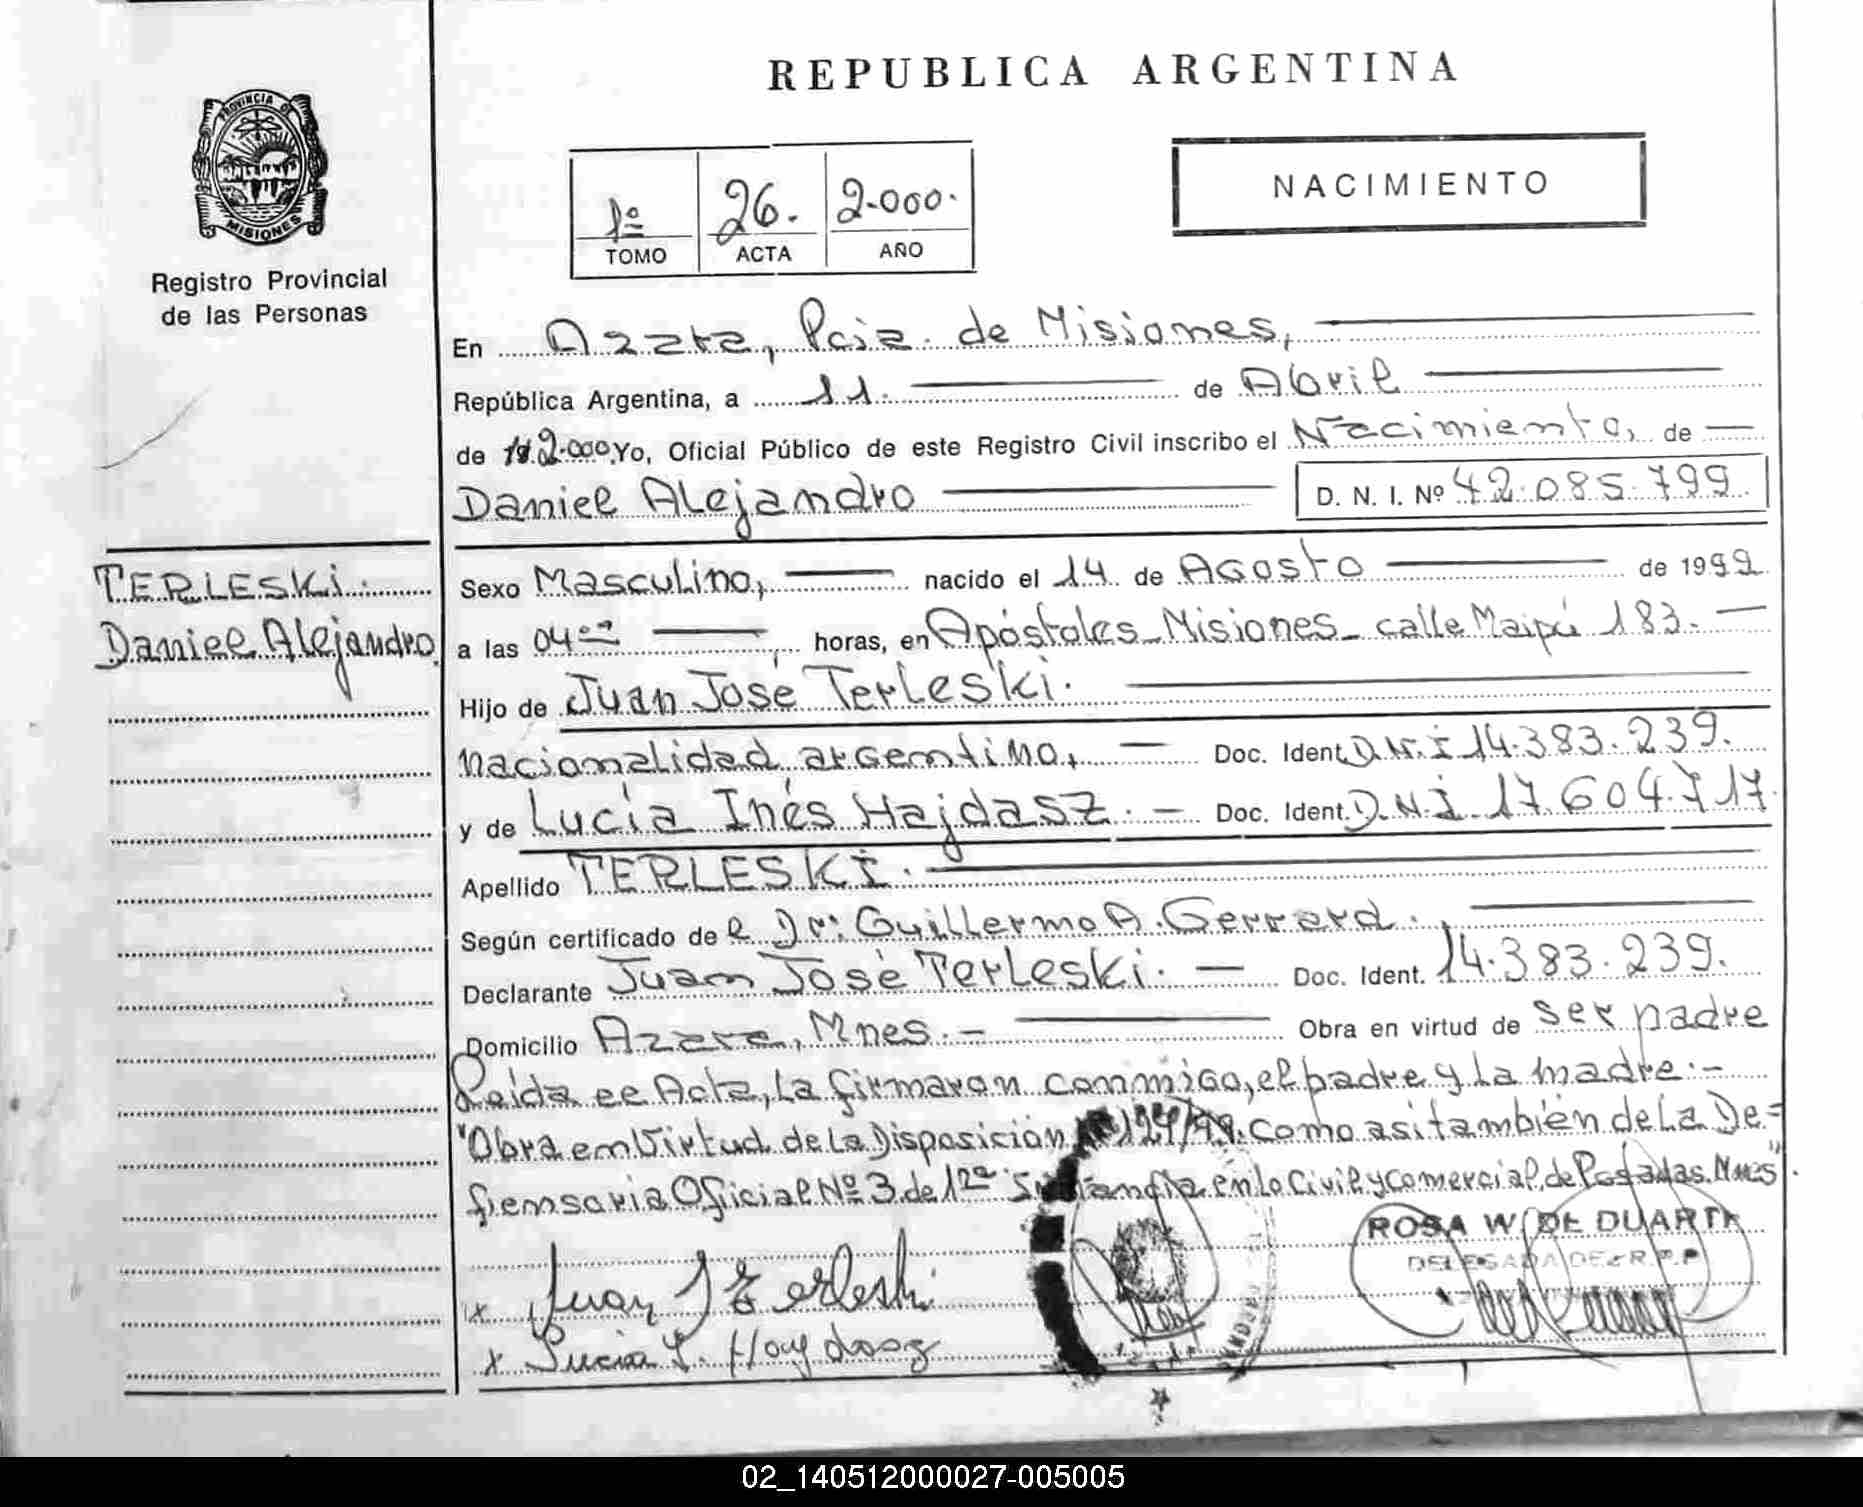 REPUBLICA ARGENTINA
PROVINCIA DE
MISIONES
Registro Provincial
de las Personas
1º 26. 2.000.
TOMO ACTA AÑO
NACIMIENTO
En Azara, Pcia. de Misiones,
República Argentina, a 11. de Abril
de 19 2.000. Yo, Oficial Público de este Registro Civil inscribo el Nacimiento, de
Daniel Alejandro D. N. I. Nº 42.085.799.
TERLESKI.
Daniel Alejandro
Sexo Masculino, nacido el 14 de Agosto de 1999
a las 04 horas, en Apóstoles_Misiones_ calle Maipú 183.
Hijo de Juan José Terleski.
nacionalidad argentino, Doc. Ident. D.N.I 14.383.239.
y de Lucía Inés Hajdasz. Doc. Ident. D.N.I. 17.604.717.
Apellido TERLESKI.
Según certificado de l Dr: Guillermo A. Gerrard.
Declarante Juan José Terleski. Doc. Ident. 14.383.239.
Domicilio Azara, Mnes. Obra en virtud de ser padre
Leída el Acta, la firmaron conmigo, el padre y la madre.-
"Obra en Virtud de la Disposición Nº 124/99. como asi también de la De=
fensoria Oficial Nº 3 de 1ra en lo Civil y Comercial, de Posadas. Mnes".
ROSA W. DE DUARTE
DELEGADA DE R.P.P
x Juan J Terleski
x Lucia I. Haydasz
02_140512000027-005005